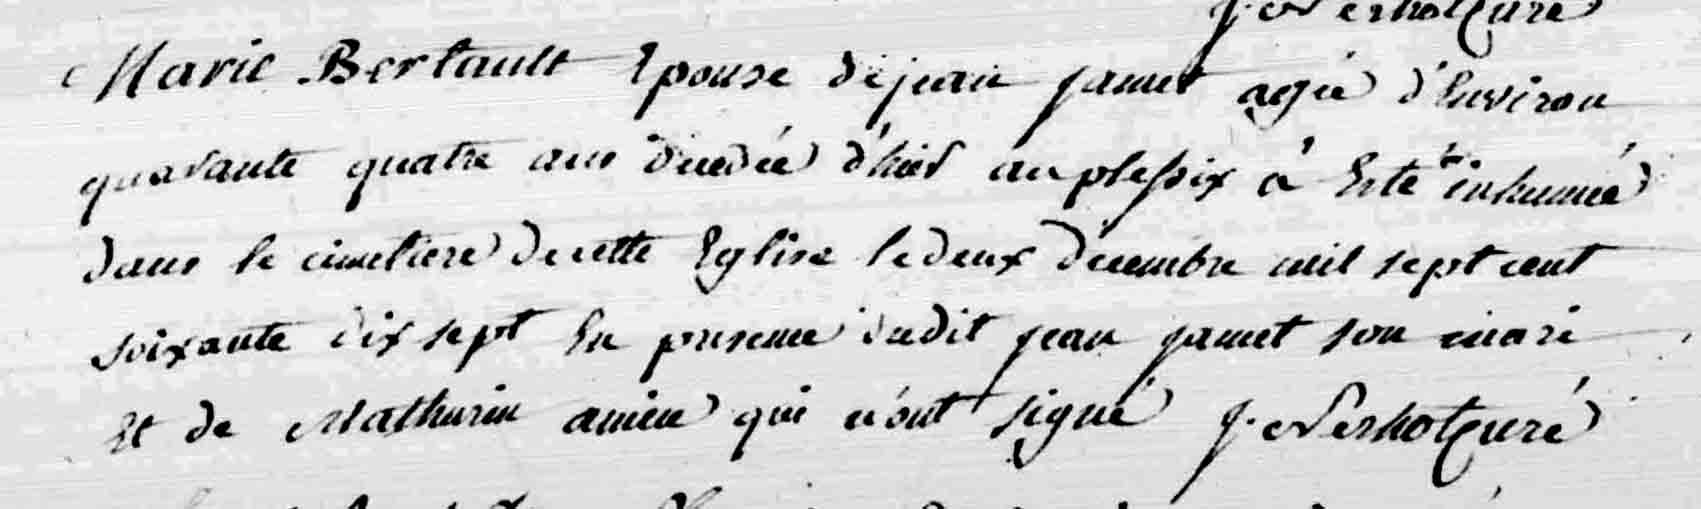 curé
Marie Bertault Epouse de jean jamet agée d'Environ
quarante quatre ans decedée d'hier au plessix a Eté inhumée
dans le cimetiere de cette Eglise le deux decembre mil sept cent
soixante dix sept En presence dudit jean jamet son mari
Et de Mathurin qui n'ont signé J. curé